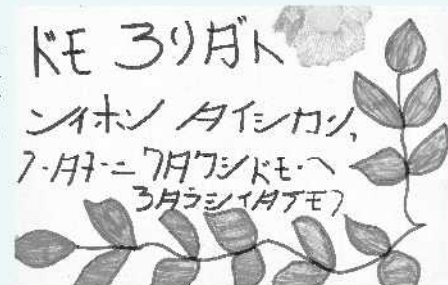 ドモ ヨリガト
ンイホン タイシカン、
フ-タナ-ニ ワタワシドモ-ヘ
ヨタラシイタテモフ